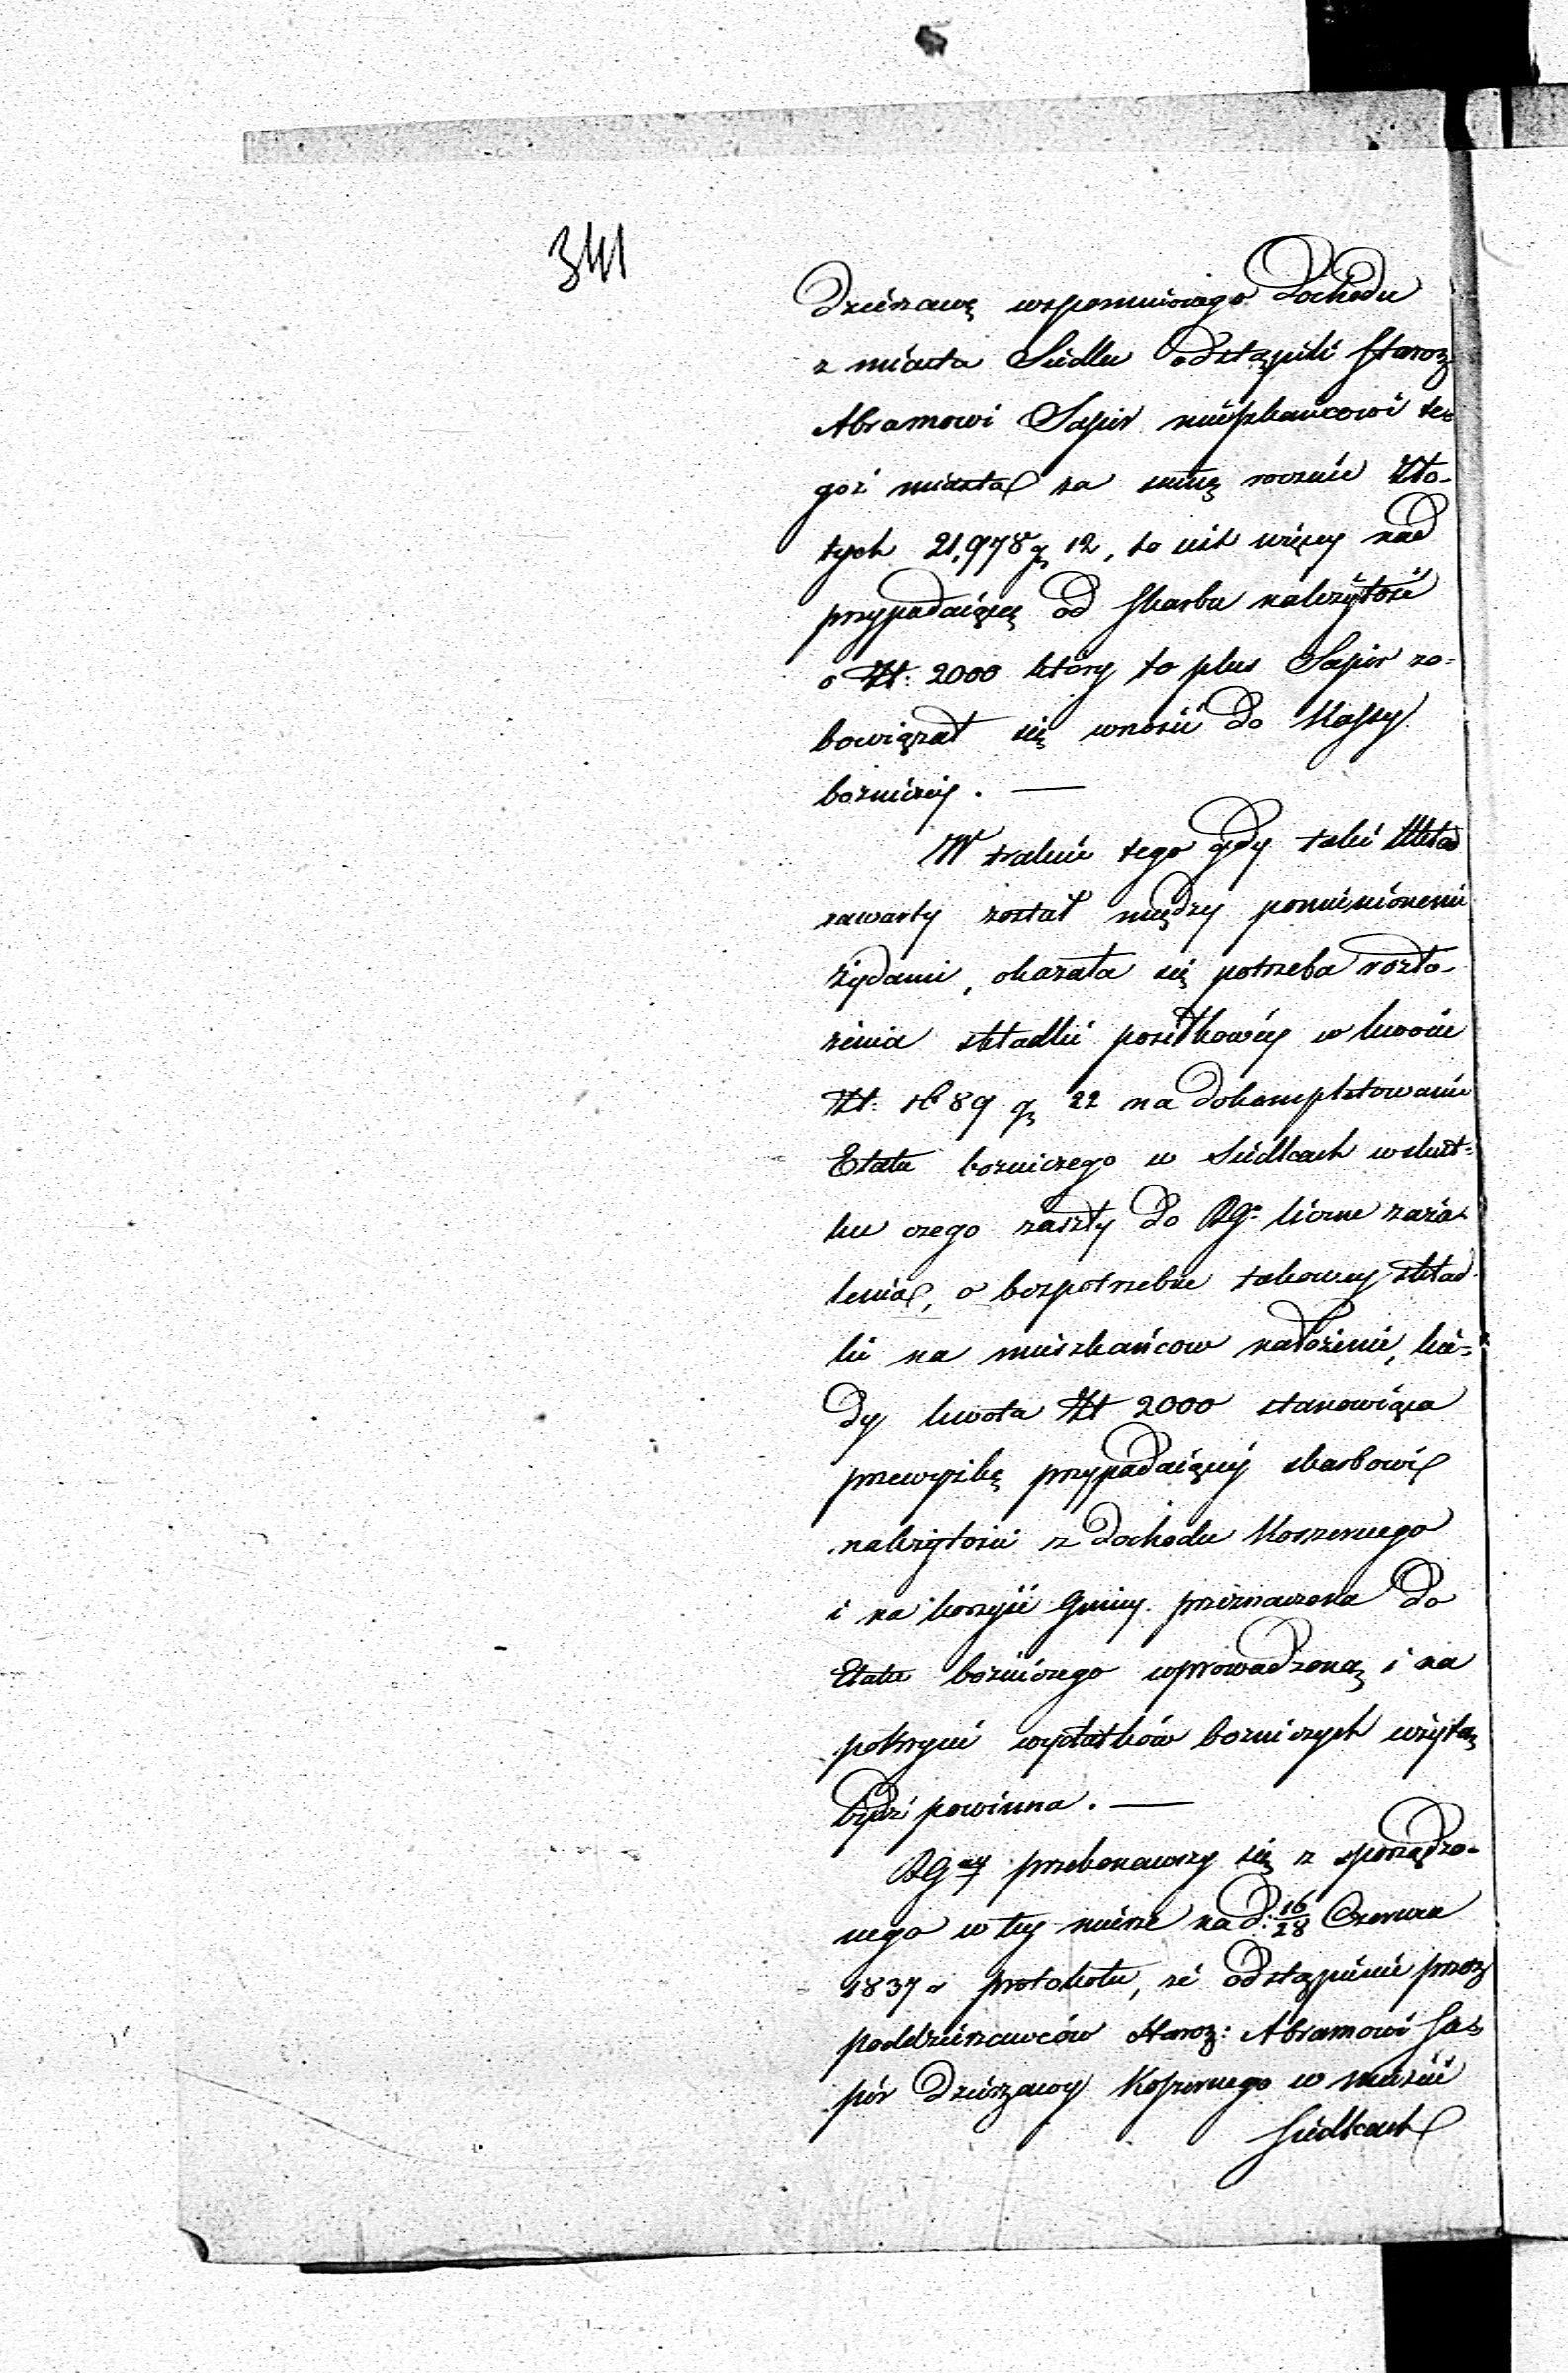 341
Dzierzawę wspomnionego Dochodu
z miasta Siedlec odstąpili Staroz
Abramowi Sapir mieszkancowi te=
goż miasta za sumę rocznie Zło-
tych 21,978 g 12, to iest więcey nad
przypadaiącą od Skarbu należytość
o Zł: 2000 który to plus Sapir zo=
bowiązał się wnosić do Kassy
bożniczey. —
W trakcie tego gdy taki Układ
zawarty został między pomienionemi
żydami, okazała się potrzeba rozło-
żenia składki posiłkowéy w kwocie
Zł: 1689 g 22 na dokompletowanie
Etatu bozniczego w Siedlcach wskut=
ku czego zaszły do RG. liczne zaża-
lenia, o bezpotrzebne takowey skład-
ki na mieszkańcow nałożenie, kie=
dy kwota Zł 2000 stanowiąca
przewyżkę przypadaiącéy skarbowi
należytości z dochodu Koszernego
i na korzyść Gminy przeznaczona do
Etatu bożniczego wprowadzoną i na
pokrycie wydatków bozniczych użytą
bydź powinna. —
RG przekonawszy się z sporządzo-
nego w tey mierze na d: 16/28 Czerwca
1837 r protokołu, że odstąpienie przez
poddzierzawców Staroz: Abramowi Sa=
pir Dzierzawy Koszernego w mieście
Siedlcach